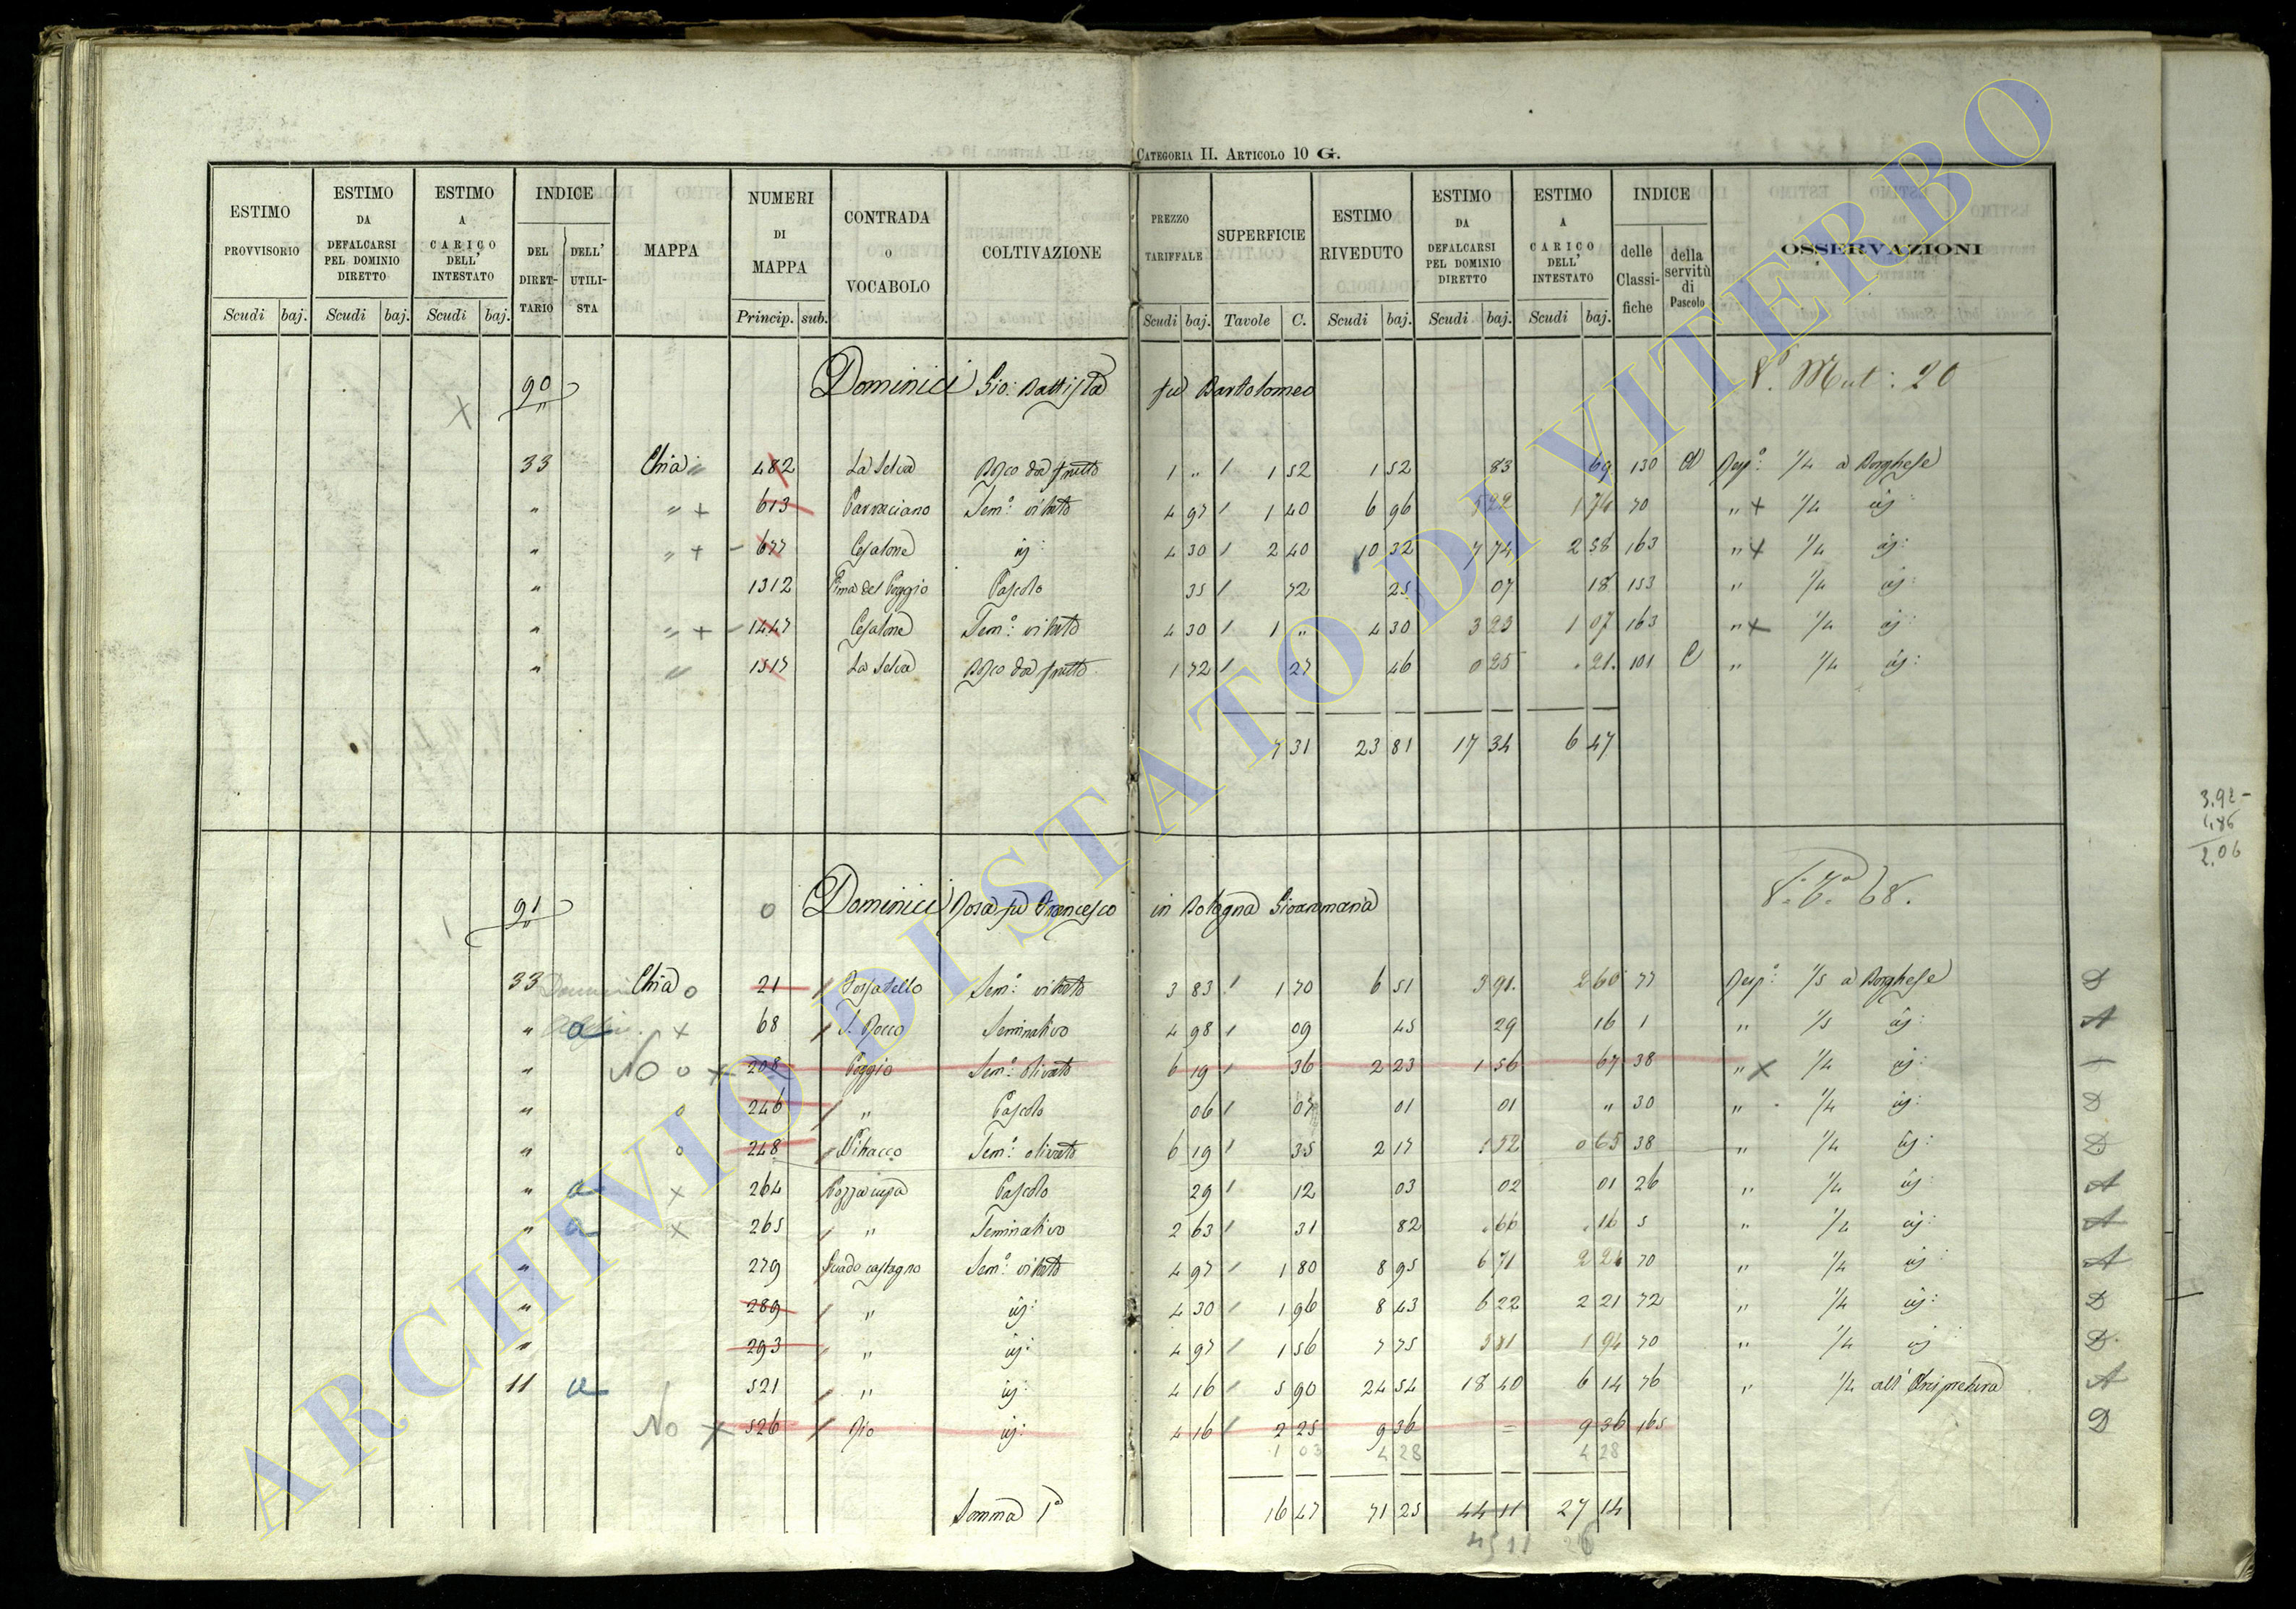 CATEGORIA II. ARTICOLO 10 G.
ESTIMO PROVVISORIO Scudi baj.
ESTIMO DA DEFALCARSI PEL DOMINIO DIRETTO Scudi baj.
ESTIMO A CARICO DELL' INTESTATO Scudi baj.
INDICE DEL DIRETTARIO DELL' UTILISTA
MAPPA
NUMERI DI MAPPA Princip. sub.
CONTRADA o VOCABOLO
COLTIVAZIONE
PREZZO TARIFFALE Scudi baj.
SUPERFICIE Tavole C.
ESTIMO RIVEDUTO Scudi baj.
ESTIMO DA DEFALCARSI PEL DOMINIO DIRETTO Scudi baj.
ESTIMO A CARICO DELL' INTESTATO Scudi baj.
INDICE delle Classifiche della servitù di Pascolo
OSSERVAZIONI
90 Dominici Gio: Battista fu Bartolomeo Mut: 20
33 Chia 482 La Selva Bosco da frutto 1 " 1 52 1 52 83 69 130 Risp: 1/4 a Borghese
" " + 613 Sem: vitato 4 97 1 40 6 96 5 22 1 74 70 " + 1/4 iij:
" " + 677 Cesalone iij: 4 30 2 40 10 32 7 74 2 58 163 " + 1/4 iij:
" 1312 Cima del Poggio Pascolo 35 72 25 07 18 153 " 1/4 iij:
" " + 1447 Cesalone Sem: vitato 4 30 1 " 4 30 3 23 1 07 163 " + 1/4 iij:
" " 1517 La Selva Bosco da frutto 1 72 27 46 0 25 21 101 C " 1/4 iij:
7 31 23 81 17 34 6 47
3.92 -
1,86
2,06
91 0 Dominici Rosa fu Francesco in Bologna Gioanmaria 68.
33 Chia o 21 Sem: vitato 3 83 1 70 6 51 3 91 2 60 77 Risp: 1/5 a Borghese D
" a x 68 S. Rocco Seminativo 4 98 09 45 29 16 1 " 1/5 iij: A
" No o x 208 Poggio Sem: olivato 6 19 36 2 23 1 56 67 38 " x 1/4 iij:
" o 246 " Pascolo 06 07 01 01 " 30 " 1/4 iij: D
" o 248 Sem: olivato 6 19 35 2 17 1 52 0 65 38 " 1/4 iij: D
" a x 264 Pozza cupa Pascolo 29 12 03 02 01 26 " 1/4 iij: A
" a x 265 " Seminativo 2 63 31 82 66 16 5 " 1/4 iij: A
" 279 Guado castagno Sem: vitato 4 97 1 80 8 95 6 71 2 24 70 " 1/4 iij: A
" 289 " iij: 4 30 1 96 8 43 6 22 2 21 72 " 1/4 iij: D
" 293 " iij: 4 97 1 56 7 75 5 81 1 94 70 " 1/4 iij D.
11 a 521 " iij: 4 16 5 90 24 54 18 40 6 14 76 " 1/4 all' Arcipretura A
No x 526 Rio iij: 4 16 2 25 9 36 = 9 36 165 D
1 03 4 28 4 28
Somma 1a 16 47 71 25 44 11 27 14
45 11 26
ARCHIVIO DI STATO DI VITERBO